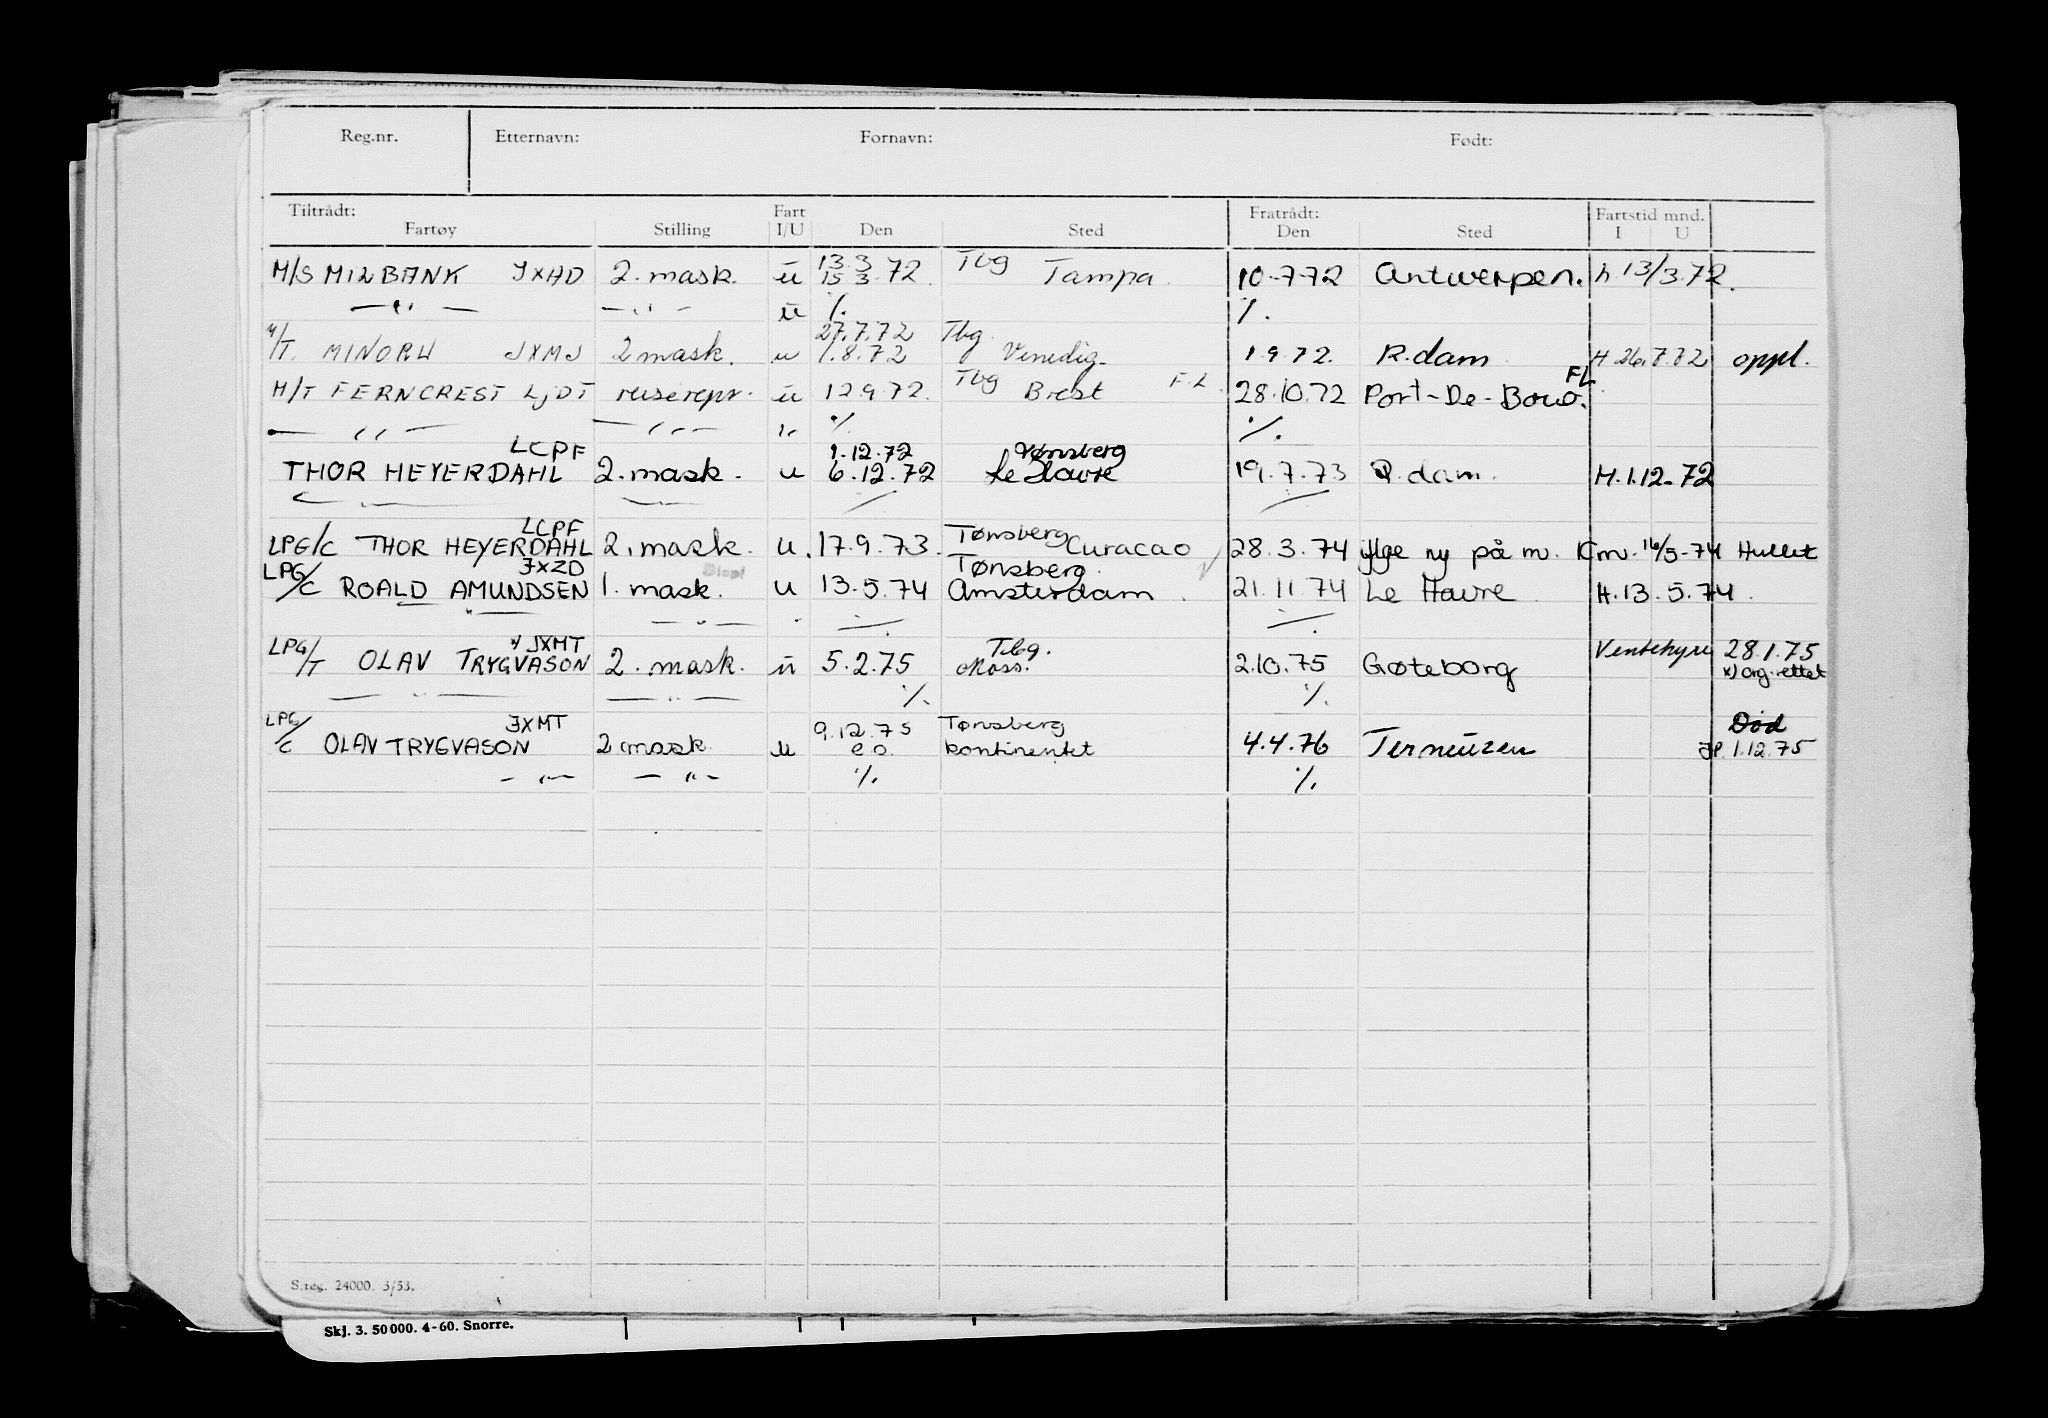 Reg.nr. Etternavn: Fornavn: Født:
Tiltrådt: Fart Fratrådt: Fartstid mnd.
Fartøy Stilling I/U Den Sted Den Sted I U
13.3 Tbg
M/S MILBANK JXHD 2. mask. u 15 3.72. Tampa 10-7-72 Antwerpen. h 13/3.72.
—"— —"— u %. %.
27.7.72 Tbg
M/T. MINORU JXMJ 2 mask. u 1.8.72 Venedig 1.9.72. R.dam H 26.7.72 oppl.
Tbg F.L. FL
M/T FERNCREST LJDT reiserepr. u 12.9.72. Brest 28.10.72 Port-De-Bouc.
—"— —"— "- %. %.
LCPF 1.12.72 Tønsberg
THOR HEYERDAHL 2. mask. u 6.12.72 Le Havre 19.7.73 R.dam. H.1.12.72
LCPF Tønsberg
LPG/C THOR HEYERDAHL 2. mask. u. 17.9.73. Curacao 28.3.74 iflge ny på m. Km. 16/5-74 Hullet
JXZD Tønsberg
LPG/C ROALD AMUNDSEN 1. mask. u 13.5.74 Amsterdam. 21.11.74 Le Havre H.13.5.74.
—"— —"—
x) JXMT Tbg.
LPG/T OLAV TRYGVASON 2. mask. u 5.2.75 Moss. 2.10.75 Gøteborg Ventehyre 28.1.75
x) org. rettet
—"— —"— %. %.
JXMT 9.12.75 Tønsberg Død
LPG/C OLAV TRYGVASON 2 mask. u e.o. kontinentet 4.4.76 Terneuzen JP. 1.12.75
—"— —"— %. %.
S.reg. 24000. 3/53.
Skj. 3. 50000. 4-60. Snorre.